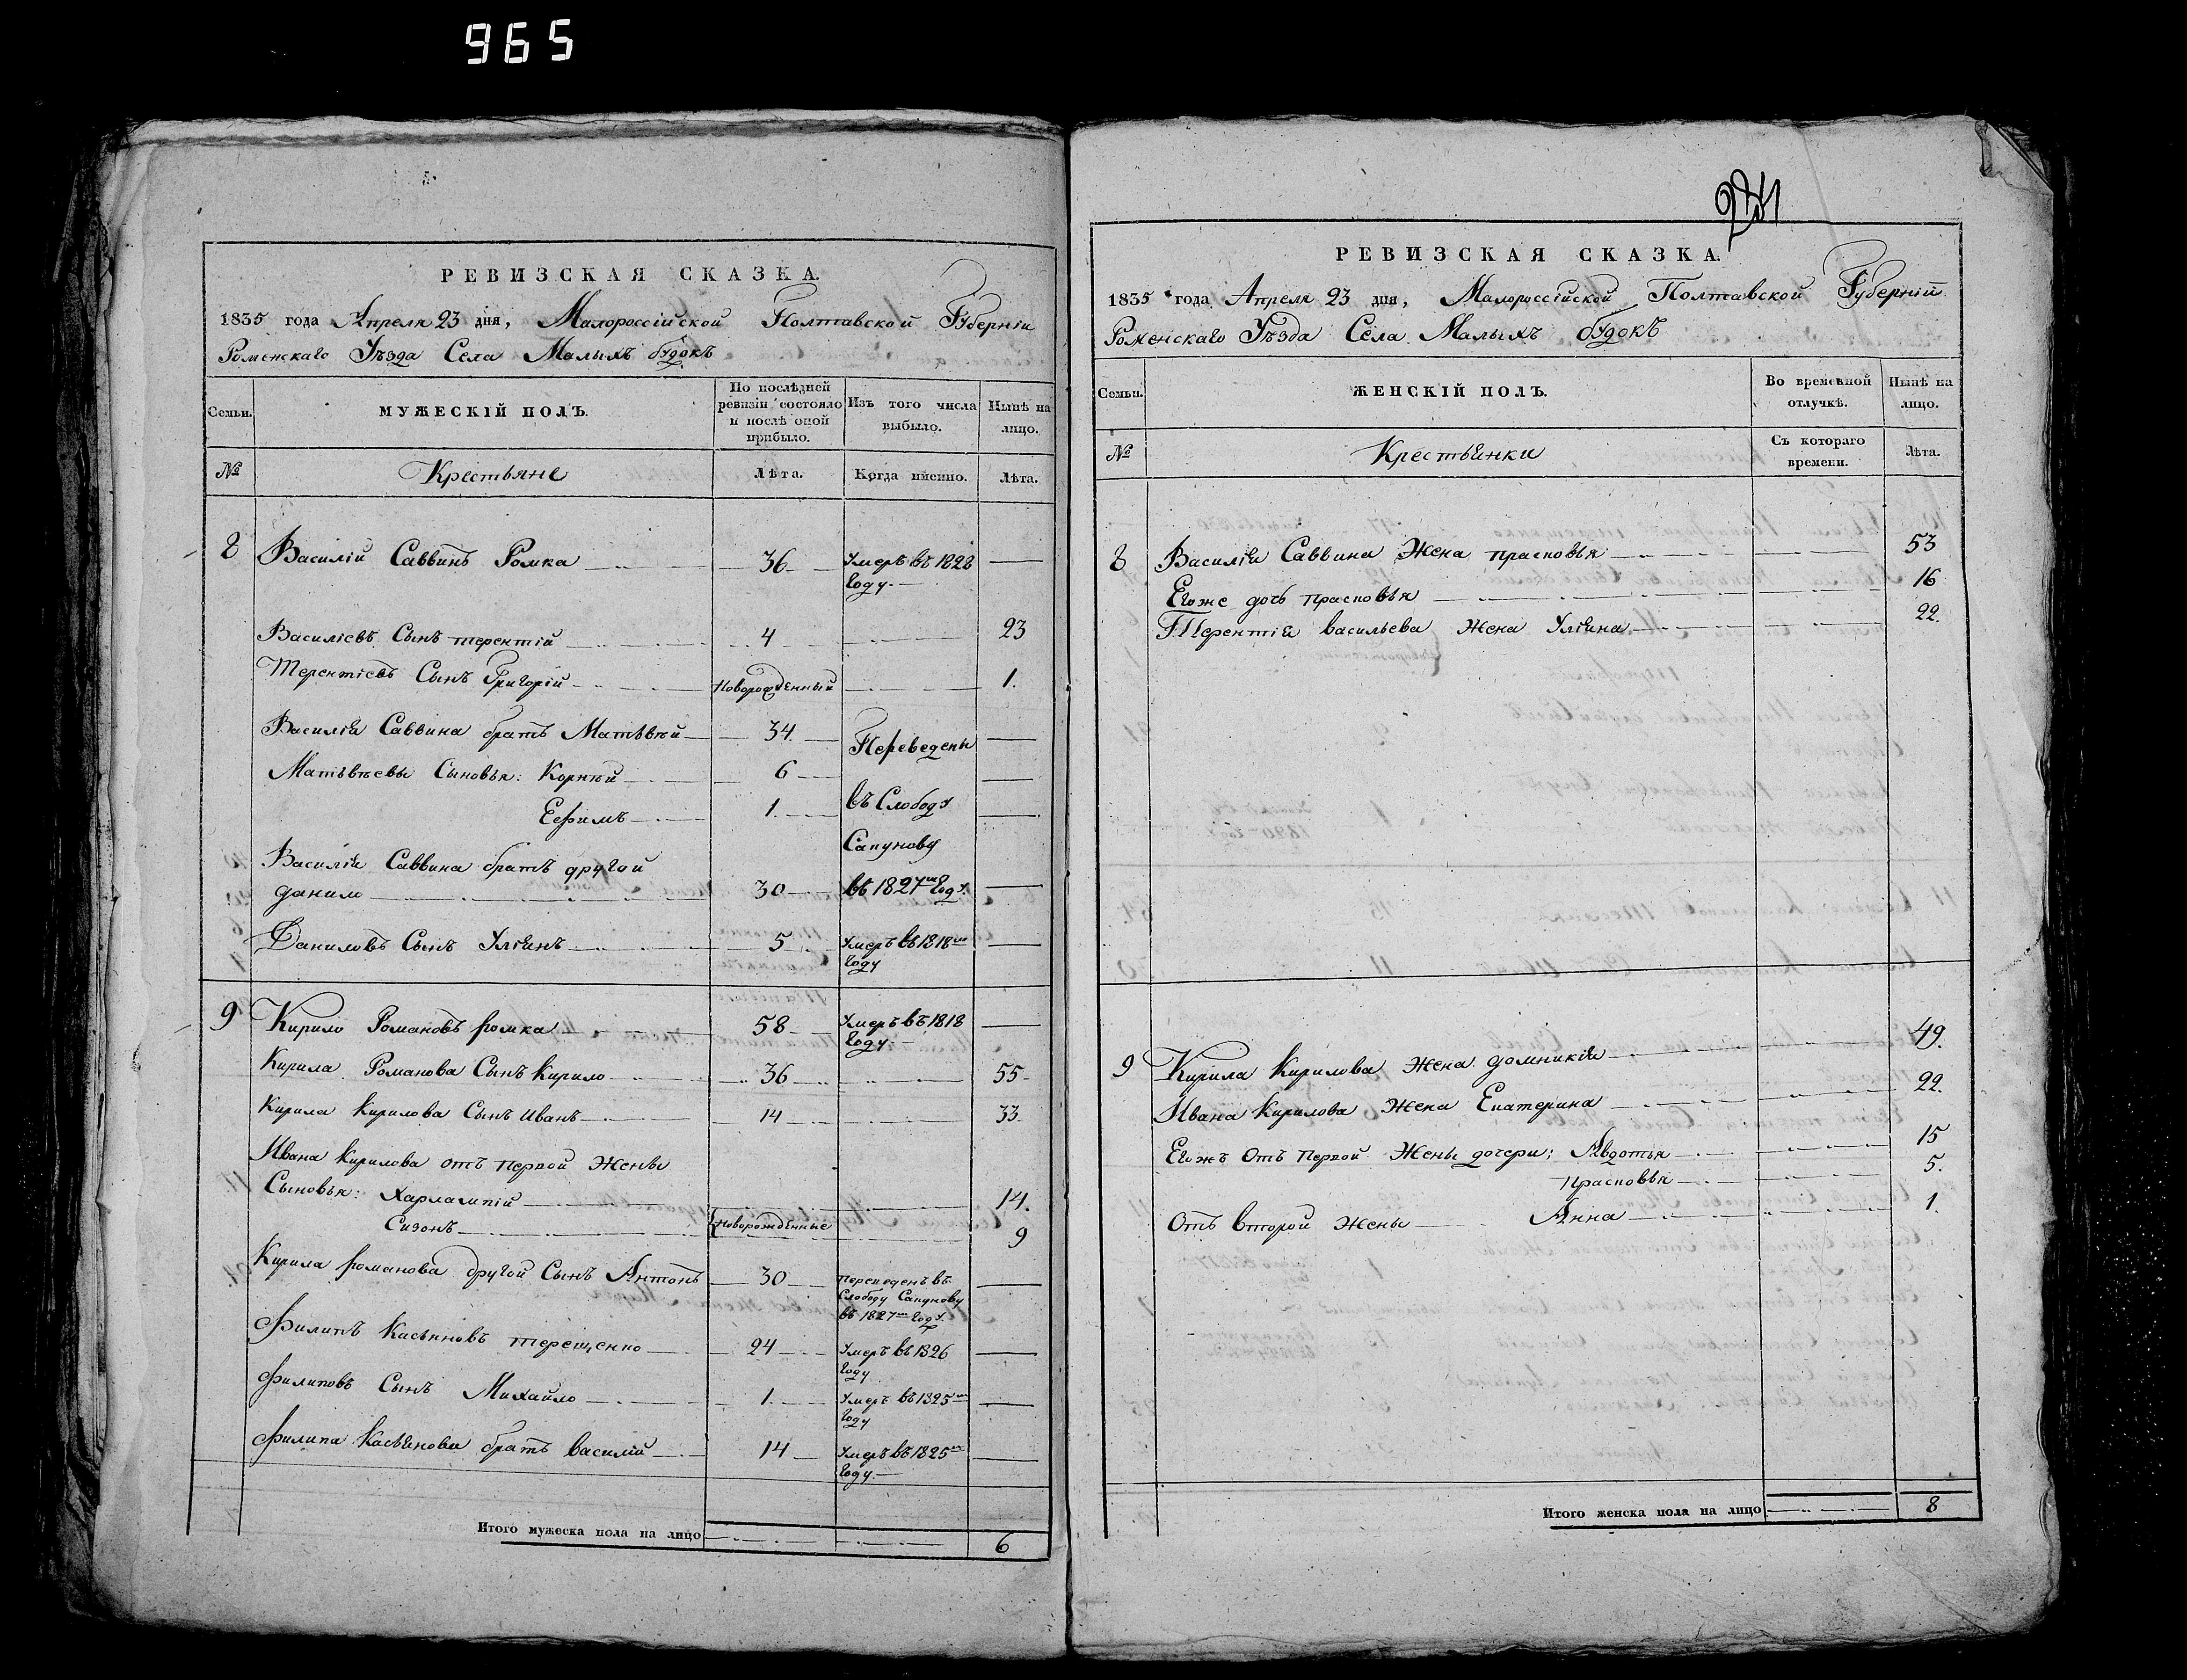 965
РЕВИЗСКАЯ СКАЗКА.
1835 года Апреля 23 дня, Малороссійской Полтавской Губерніи
Роменскаго Уѣзда Села Малыхъ будокъ
Семьи. МУЖЕСКІЙ ПОЛЪ. По послѣдней ревизіи состояло и послѣ оной прибыло. Изъ того числа выбыло. Нынѣ на лицо.
№ Крестьяне Лѣта. Когда именно. Лѣта.
8 Василій Саввинъ Ромка 36 Умеръ въ 1828
Году.
Василіевъ Сынъ терентій 4 23
Терентіевъ Сынъ Григорій Новорожденный 1.
Василія Саввина братъ Матѣвѣй 34 Переведены
Матѣвѣевы Сыновья: Корнѣй 6
Ефимъ 1. въ Слободу
Сапунову
Василія Саввина братъ другой
данило 30 въ 1827м Году.
Даниловъ Сынъ Уліянъ 5 Умеръ въ 1818м
Году
9 Кирило Романовъ ромка 58 Умеръ въ 1818
Году.
Кирила Романова Сынъ Кирило 36 55
Кирила Кирилова Сынъ Иванъ 14 33
Ивана Кирилова отъ первой Жены
Сыновья: Харлампій 14.
Сизонъ Новорожденные 9
Кирила романова другой Сынъ Антонъ 30 переведенъ въ
Слободу Сапунову
въ 1827м Году.
Филипъ Касьяновъ терещенко 24 Умеръ въ 1826
Году
Филиповъ Сынъ Михайло 1. Умеръ въ 1825м
Году
Филипа Касьянова братъ василій 14 Умеръ въ 1825м
Году.
Итого мужеска пола на лицо 6
РЕВИЗСКАЯ СКАЗКА.
1835 года Апреля 23 дня, Малороссійской Полтавской Губерніи
Роменскаго Уѣзда Села Малыхъ будокъ
Семьи. ЖЕНСКІЙ ПОЛЪ. Во временной отлучкѣ. Нынѣ на лицо.
№ Крестьянки Съ котораго времени. Лѣта.
8 Василія Саввина Жена прасковья 53
Егоже дочь прасковья 16
Терентія васильева Жена Уліяна 22.
9 Кирила Кирилова Жена домникія 49.
Ивана Кирилова Жена Екатерина 22.
Егожъ Отъ первой Жены дочери: Авдотья 15
прасковья 5.
Отъ второй жены Анна 1.
Итого женска пола на лицо 8